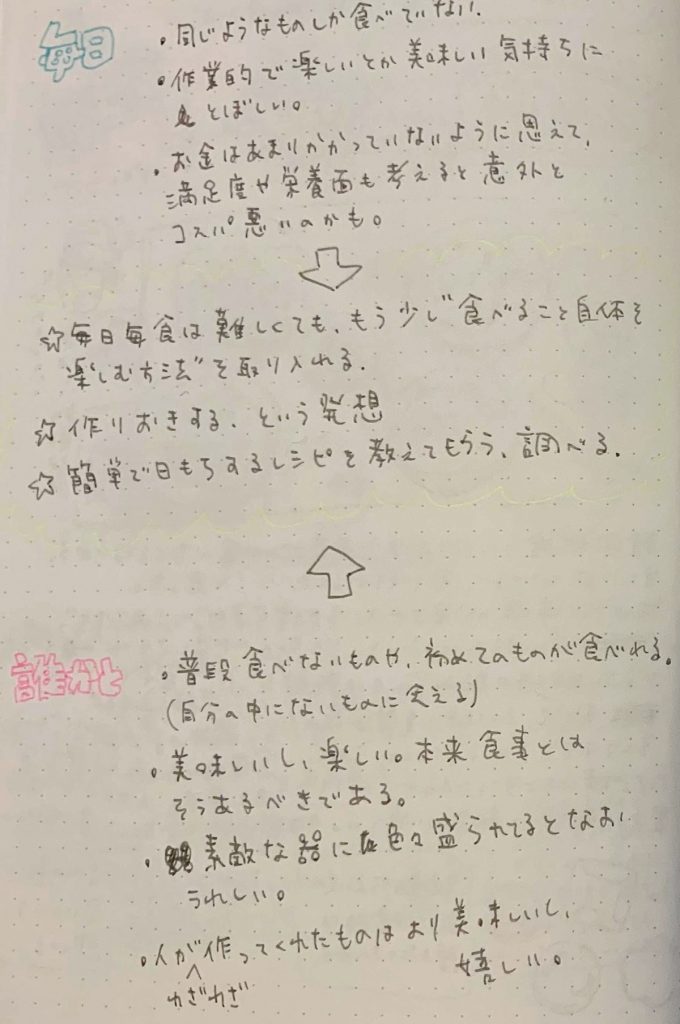 毎日
・同じようなものしか食べていない.
・作業的で楽しいとか美味しい気持ちに
とぼしい。
・お金はあまりかかっていないように思えて、
満足度や栄養面も考えると意外と
コスパ悪いのかも。
☆毎日毎食は難しくても、もう少し"食べること自体を
楽しむ方法"を取り入れる.
☆作りおきする、という発想
☆簡単で日もちするレシピを教えてもらう、調べる.
誰かと
・普段食べないものや、初めてのものが食べれる。
(自分の中にないものに会える)
・美味しいし、楽しい。本来食事とは
そうあるべきである。
・素敵な器に色々盛られてるとなお
うれしい。
・人が作ってくれたものはより美味しいし、
わざわざ
嬉しい。